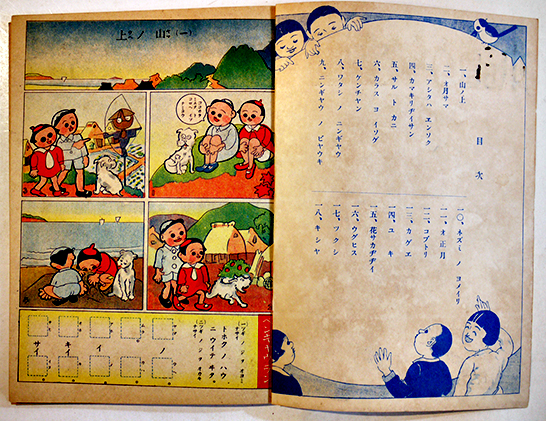 目次
一、山ノ上
二、オ月サマ
三、アシタハ エンソク
四、カマキリヂイサン
五、サル ト カニ
六、カラス ヨ イソゲ
七、ケンチャン
八、ワタシ ノ ニンギャウ
九、ニンギャウ ノ ビャウキ
一〇、ネズミ ノ ヨメイリ
一一、オ正月
一二、コブトリ
一三、カゲエ
一四、ユキ
一五、花サカヂヂイ
一六、ウグヒス
一七、ツクシ
一八、キシャ
(一) 山ノ上
トホクノ ハウ
ニ ウイテ キタ。
ノ
イ
キイ
サイ